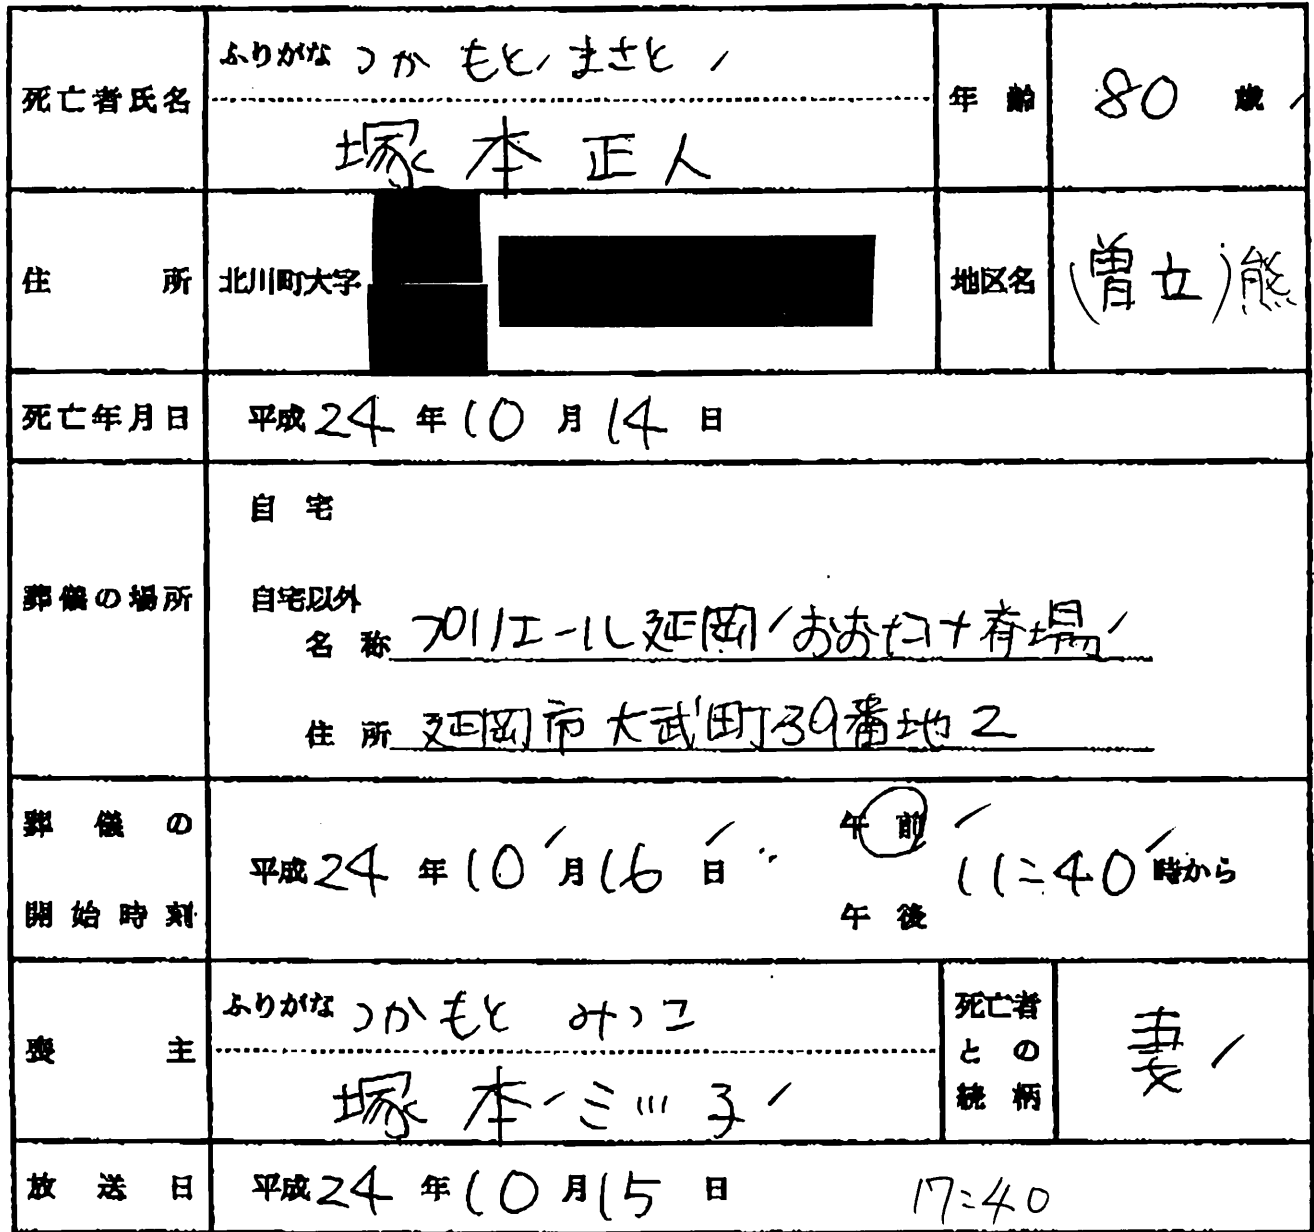 ふりがな つかもと まさと
死亡者氏名 塚本 正人 年齢 80 歳
住所 北川町大字 地区名 (曽立)熊
死亡年月日 平成24年10月14日
葬儀の場所
自宅
自宅以外
名称 プリエール延岡 おおたけ斉場
住所 延岡市大武町39番地2
葬儀の開始時刻 平成24年10月16日 午前 11:40時から
午後
ふりがな つかもと みつこ
喪主 塚本 ミツ子 死亡者との続柄 妻
放送日 平成24年10月15日 17:40